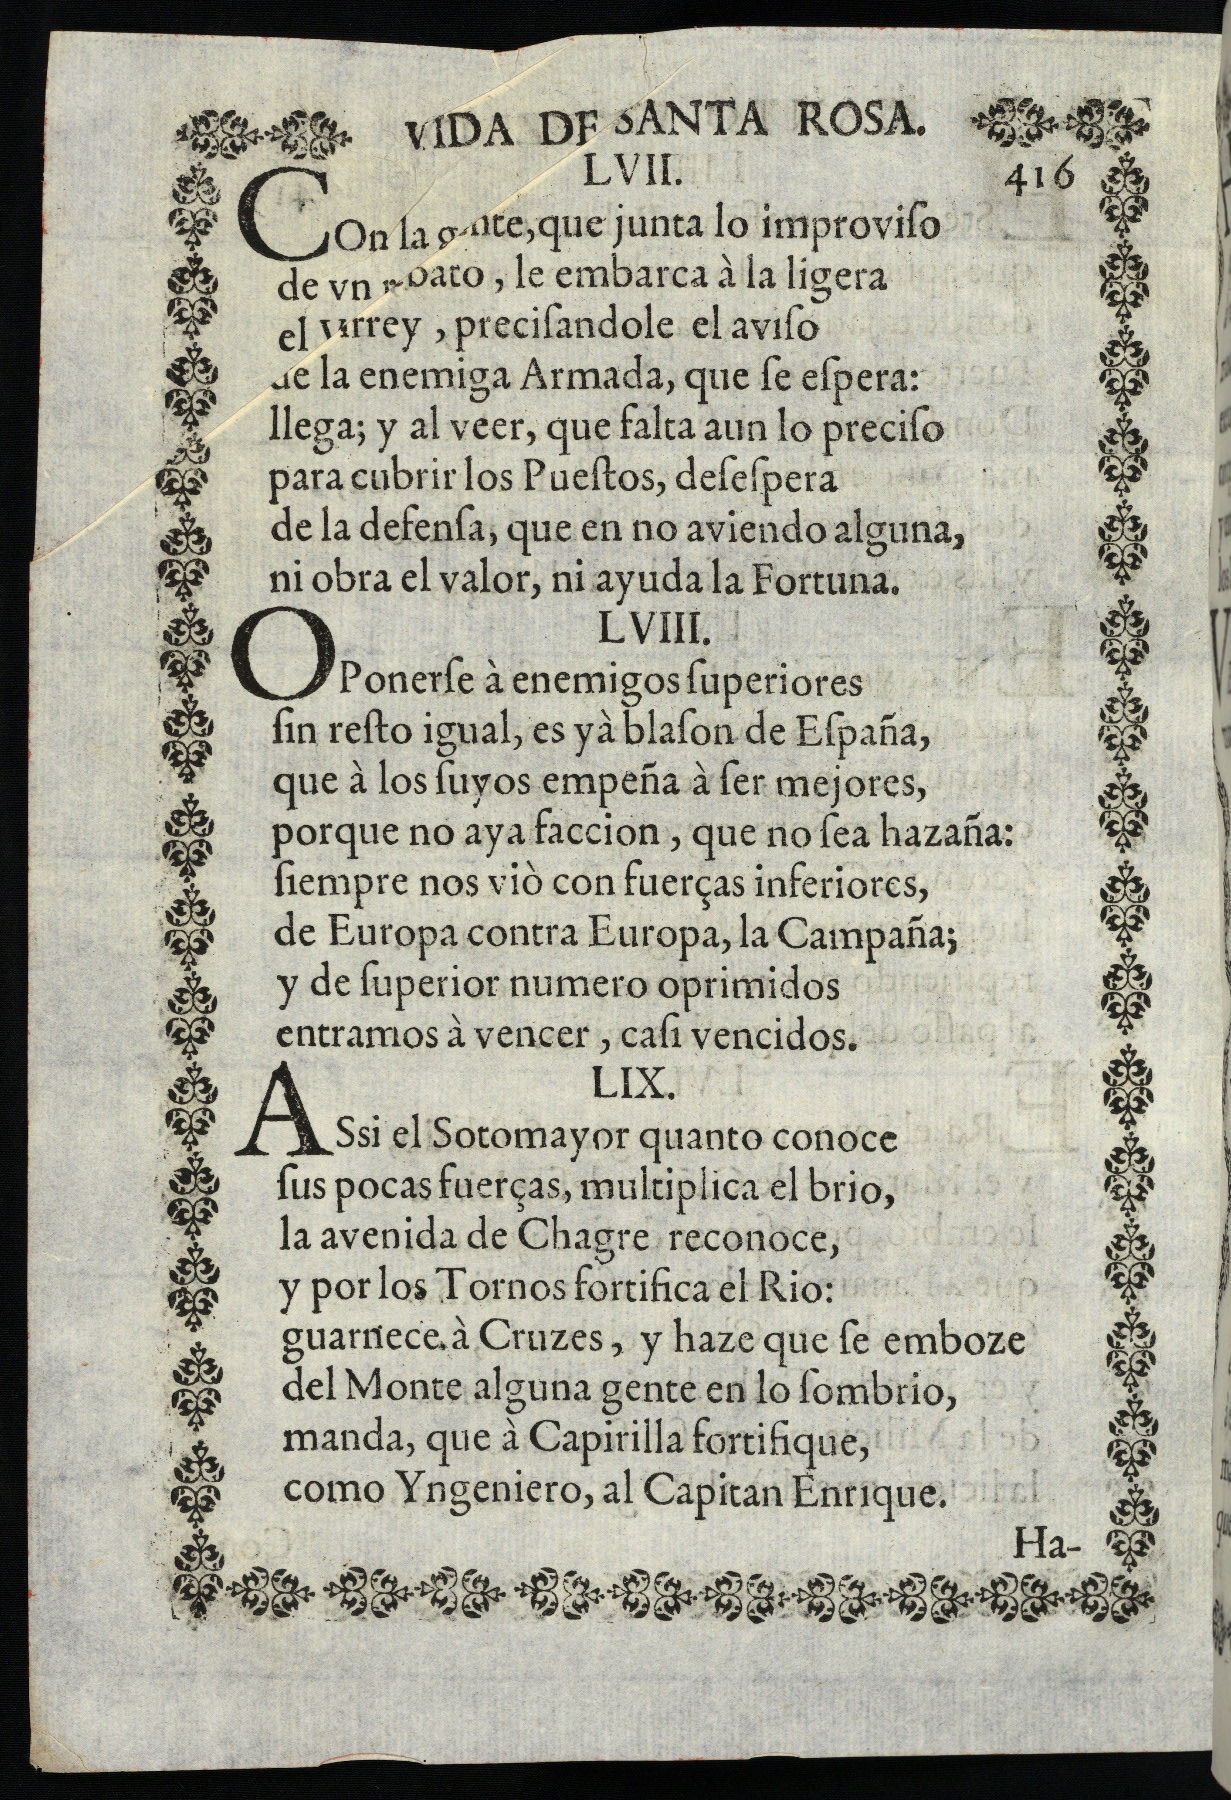 VIDA DE SANTA ROSA.
LVII.
416
COn la gente, que junta lo improviſo
de vn , le embarca à la ligera
el Virrey , preciſandole el aviſo
de la enemiga Armada, que ſe eſpera:
llega; y al veer, que falta aun lo preciſo
para cubrir los Pueſtos, deſeſpera
de la defenſa, que en no aviendo alguna,
ni obra el valor, ni ayuda la Fortuna.
LVIII.
OPonerſe à enemigos ſuperiores
ſin reſto igual, es yà blaſon de Eſpaña,
que à los ſuyos empeña à ſer mejores,
porque no aya faccion , que no ſea hazaña:
ſiempre nos viò con fuerças inferiores,
de Europa contra Europa, la Campaña;
y de ſuperior numero oprimidos
entramos à vencer , caſi vencidos.
LIX.
ASsi el Sotomayor quanto conoce
ſus pocas fuerças, multiplica el brio,
la avenida de Chagre reconoce,
y por los Tornos fortifica el Rio:
guarnece à Cruzes, y haze que ſe emboze
del Monte alguna gente en lo ſombrio,
manda, que à Capirilla fortifique,
como Yngeniero, al Capitan Enrique.
Ha-